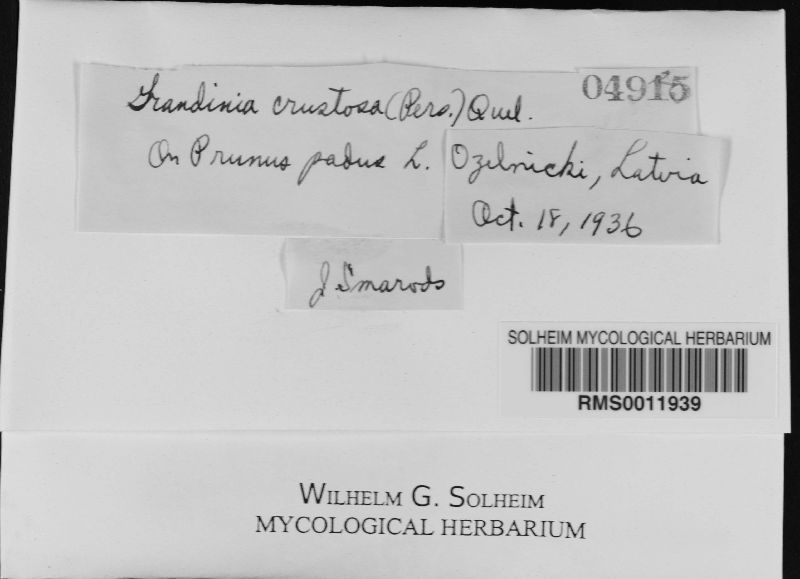 04915
Grandinia crustosa (Pers.) Quel.
On Prunus padus L.
Ozelnicki, Latvia
Oct. 18, 1936
J Smarods
SOLHEIM MYCOLOGICAL HERBARIUM
RMS0011939
WILHELM G. SOLHEIM
MYCOLOGICAL HERBARIUM